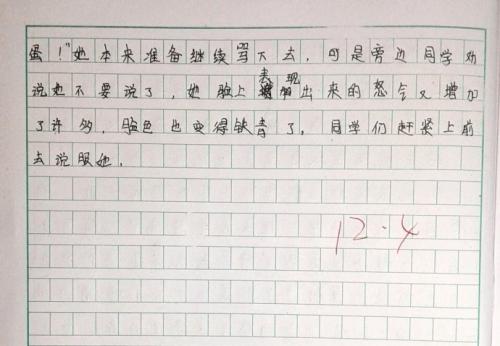 蛋！"她本来准备继续骂下去，可是旁边同学劝
说她不要说了，她脸上表现出来的怒气又增加
了许多，脸色也变得铁青了，同学们赶紧上前
去说服她。
12.4